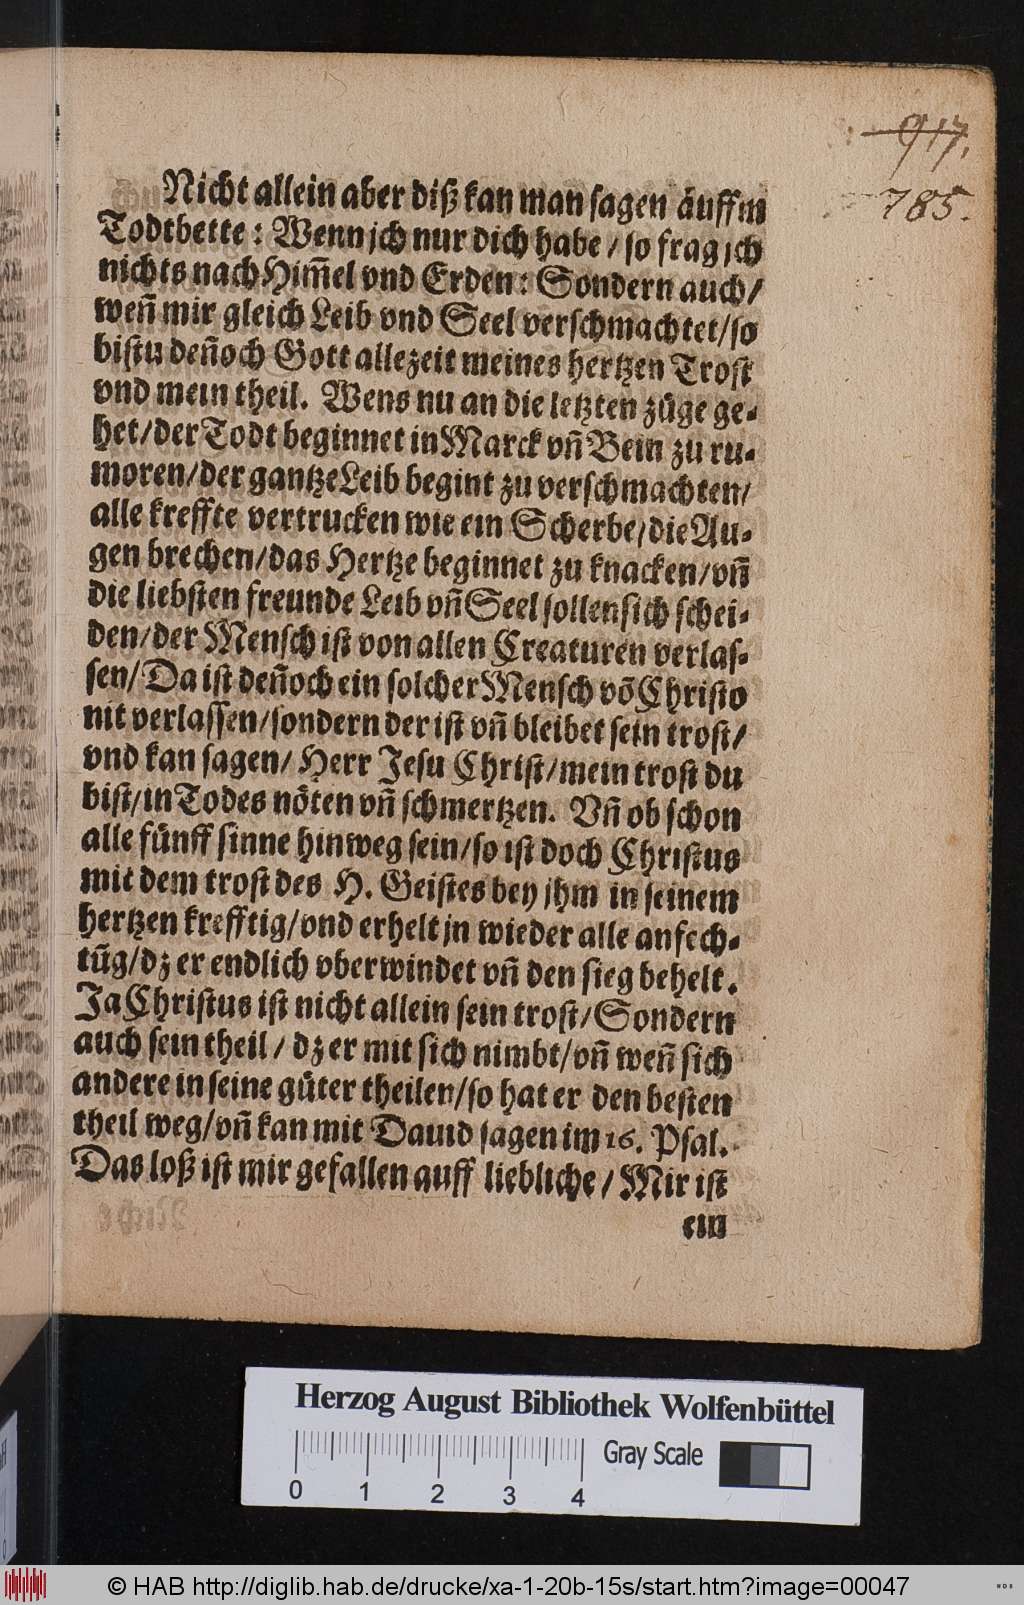 917.
785.
Nicht allein aber diß kan man sagen auffm
Todtbette: Wenn jch nur dich habe / so frag jch
nichts nach Him̃el vnd Erden: Sondern auch/
weñ mir gleich Leib vnd Seel verschmachtet/so
bistu deñoch Gott allezeit meines hertzen Trost
vnd mein theil. Wens nu an die letzten züge ge-
het/der Todt beginnet in Marck vñ Bein zu ru-
moren/der gantze Leib begint zu verschmachten/
alle kreffte vertrucken wie ein Scherbe/die Au-
gen brechen/das Hertze beginnet zu knacken/vñ
die liebsten freunde Leib vñ Seel sollen sich schei-
den/der Mensch ist von allen Creaturen verlas-
sen/Da ist deñoch ein solcher Mensch võ Christo
nit verlassen/sondern der ist vñ bleibet sein trost/
vnd kan sagen/ Herr Jesu Christ/mein trost du
bist/in Todes nöten vñ schmertzen. Vñ ob schon
alle fünff sinne hinweg sein/so ist doch Christus
mit dem trost des H. Geistes bey jhm in seinem
hertzen krefftig/vnd erhelt jn wieder alle anfech-
tũg/dz er endlich vberwindet vñ den sieg behelt.
Ja Christus ist nicht allein sein trost/Sondern
auch sein theil / dz er mit sich nimbt/vñ weñ sich
andere in seine güter theilen/so hat er den besten
theil weg/vñ kan mit Dauid sagen im 16. Psal.
Das loß ist mir gefallen auff liebliche / Mir ist
ein
Herzog August Bibliothek Wolfenbüttel
Gray Scale
0 1 2 3 4
© HAB http://diglib.hab.de/drucke/xa-1-20b-15s/start.htm?image=00047